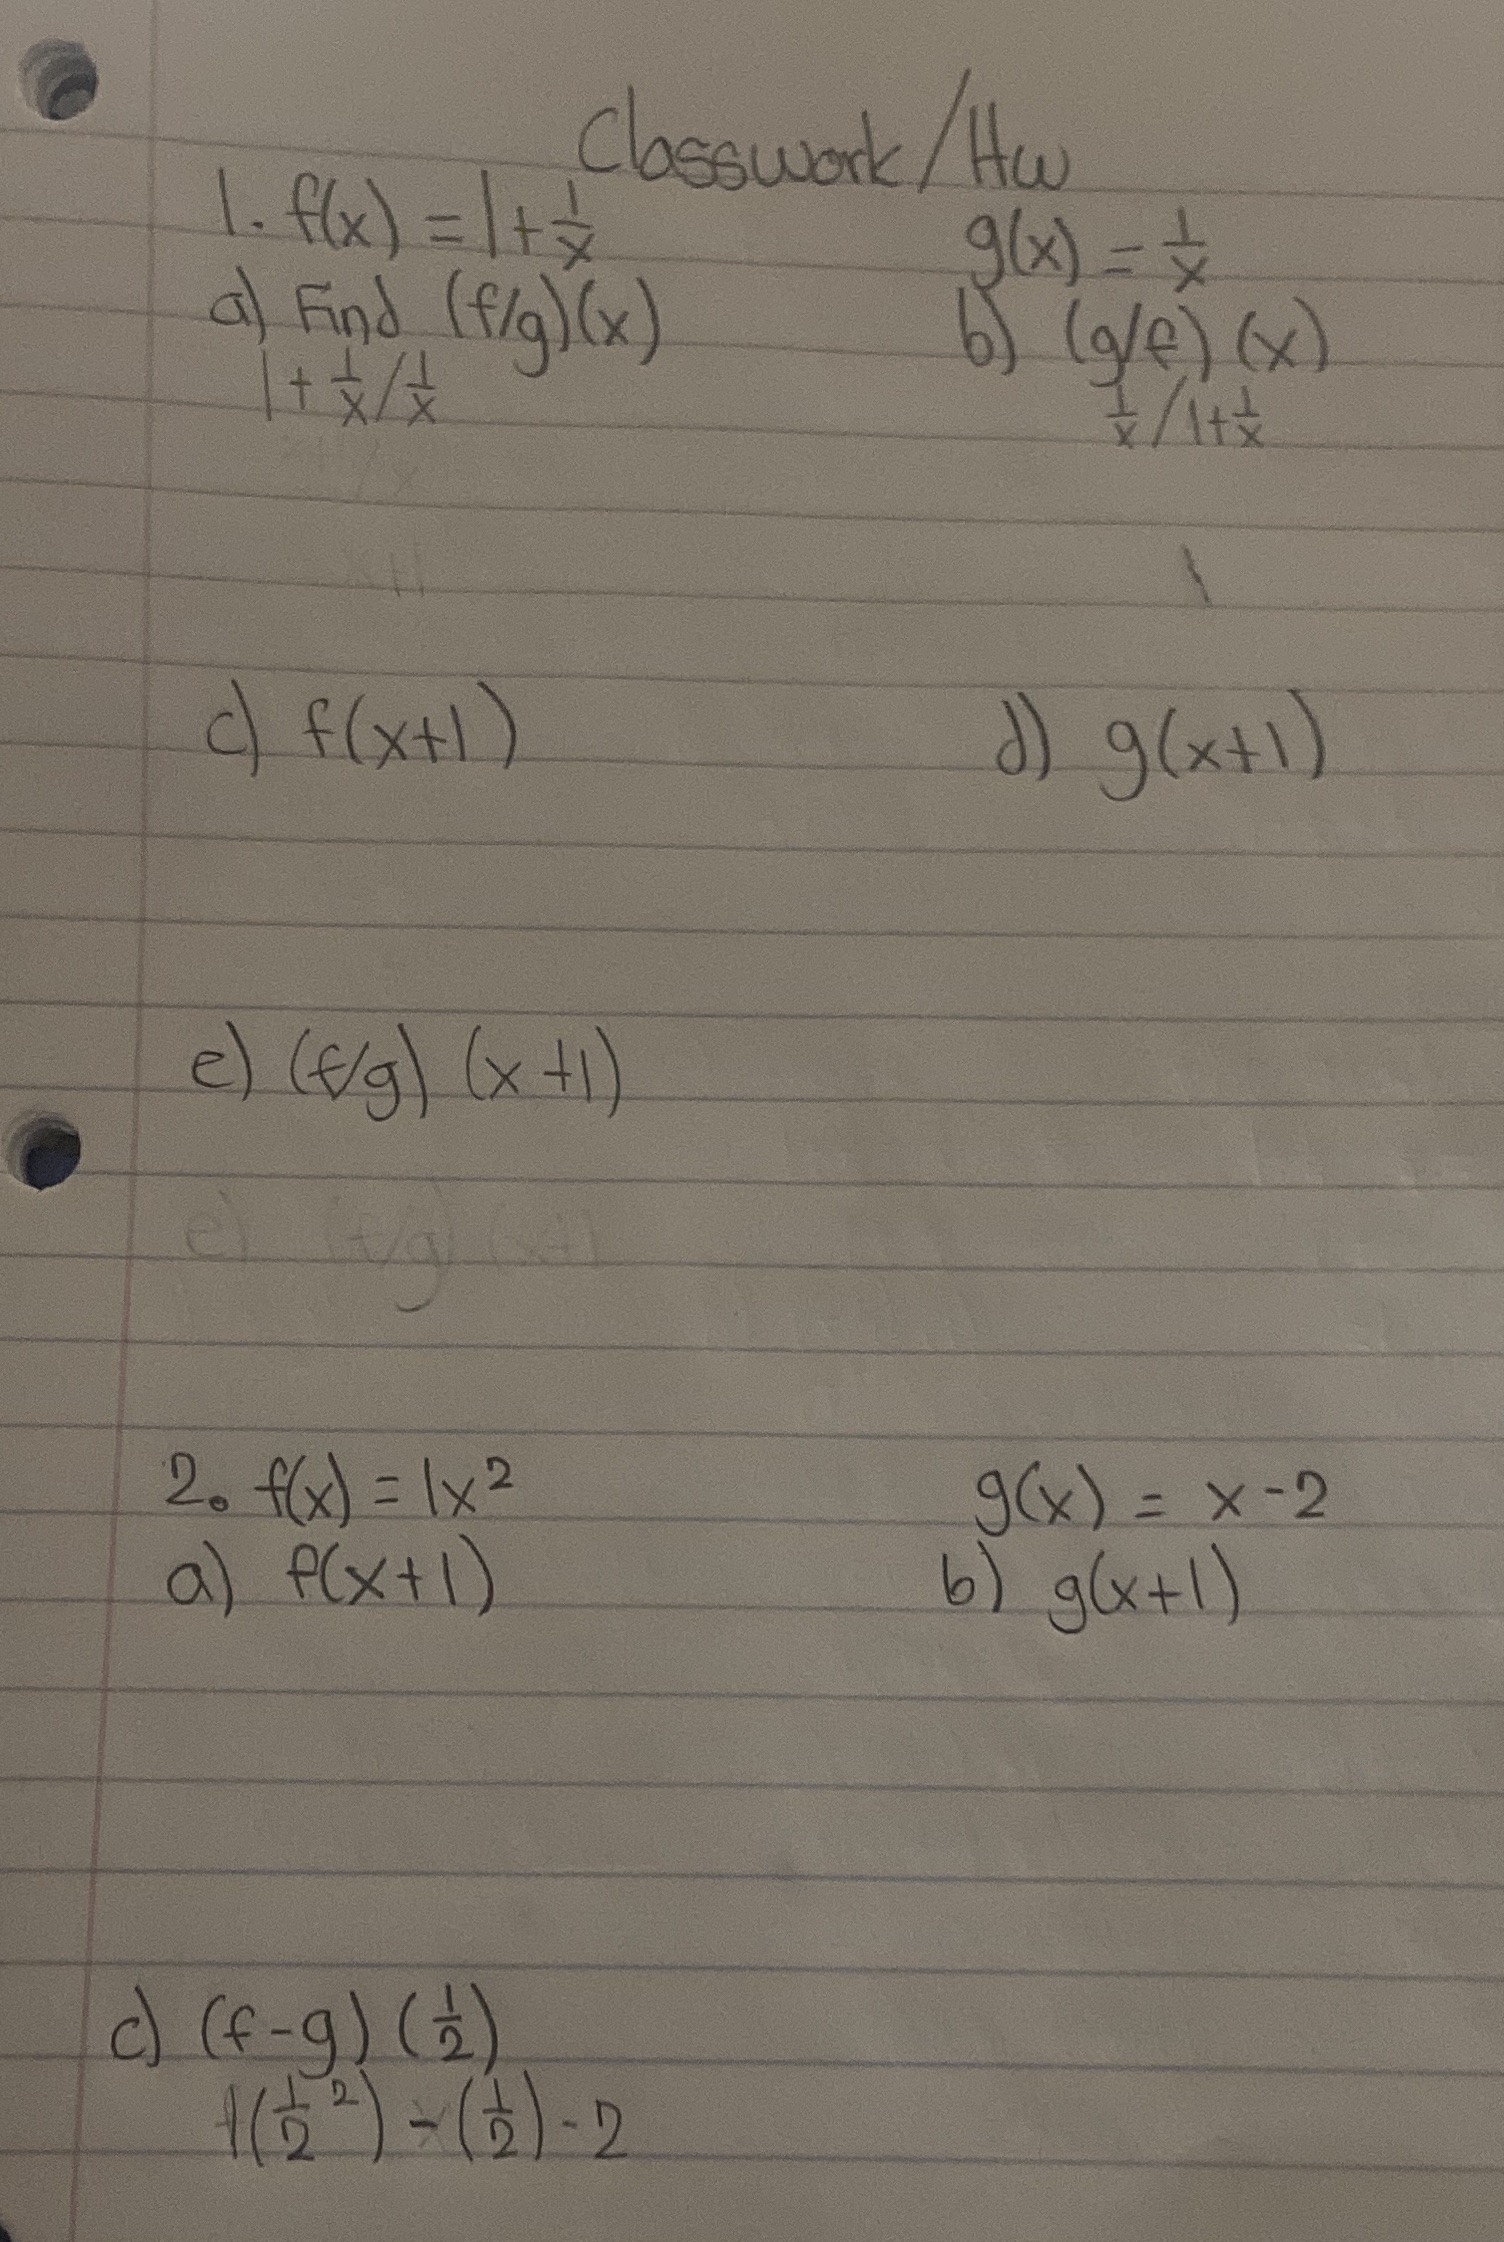 Classwork/Hw
1. f(x) = 1 + 1/x
g(x) = 1/x
a) Find (f/g)(x)
b) (g/f) (x)
1 + 1/x / 1/x
1/x / 1 + 1/x
c) f(x+1)
d) g(x+1)
e) (f/g) (x+1)
e) (f/g) (x+1)
2. f(x) = 1x²
g(x) = x-2
a) f(x+1)
b) g(x+1)
c) (f-g) (1/2)
1(1/2 ²) - (1/2) - 2